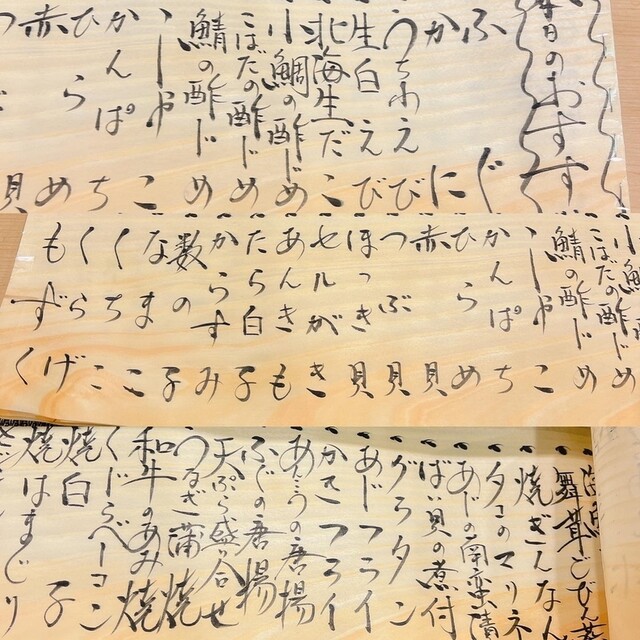 本日のおすす
ふぐ
かに
うちわえび
生白えび
北海生だこ
小鯛の酢じめ
こはだの酢じめ
鯖の酢じめ
しゃこ
かんぱち
ひらめ
赤貝
こはだの酢じめ
鯖の酢じめ
しゃこ
かんぱち
ひらめ
赤貝
つぶ貝
ほっき貝
セルがき
あんきも
たら白子
からすみ
数の子
なまこ
くちこ
くらげ
もずく
舞茸どびん蒸
焼ぎんなん
タコのマリネ
あじの南蛮漬
ばい貝の煮付
グラタン
あじフライ
かきフライ
あんこうの唐揚
ふぐの唐揚
天ぷら盛り合せ
うなぎ蒲焼
和牛のあみ焼
くじらベーコン
焼白子
焼はまぐり